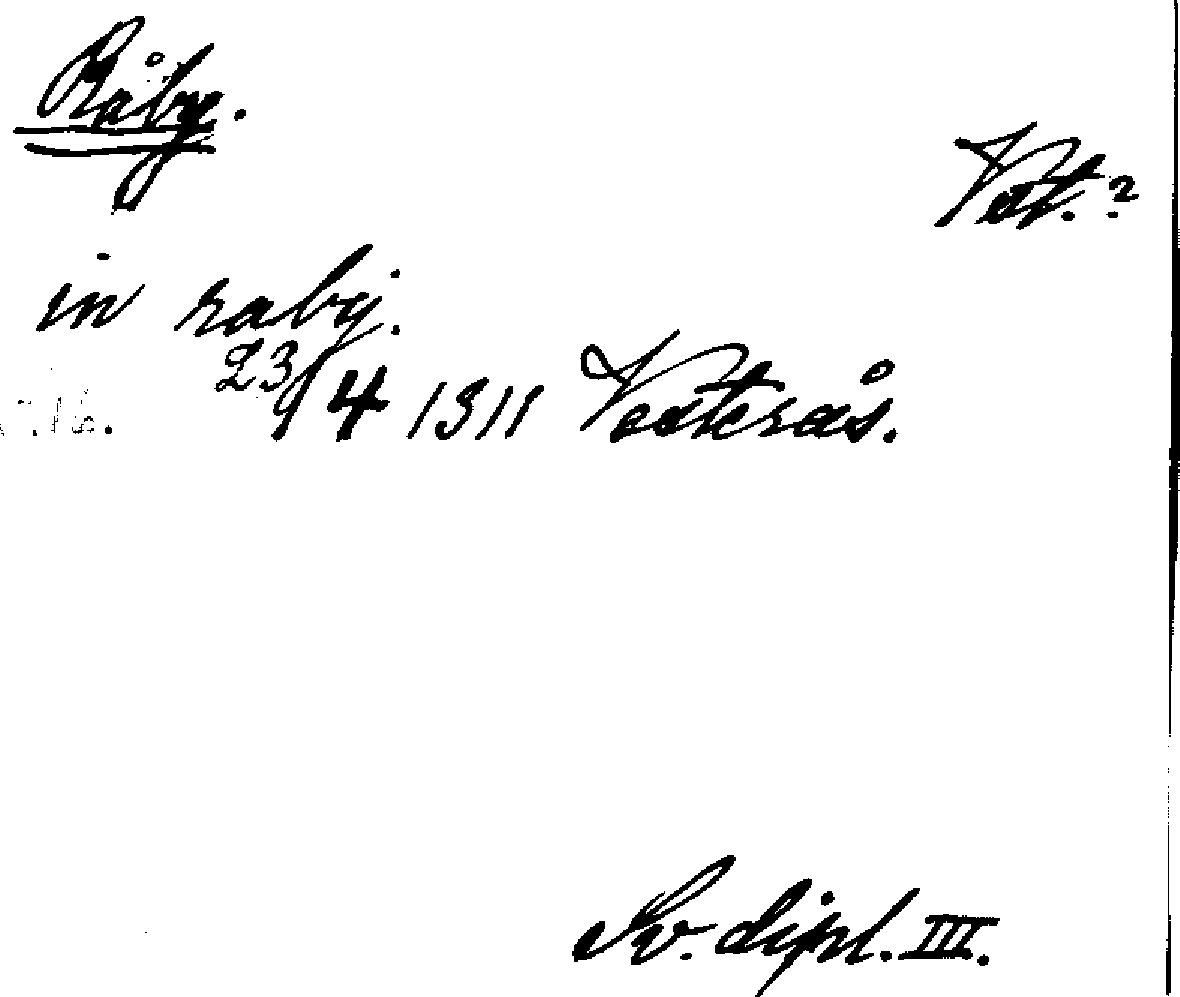 Råby.
Vst.?
in raby.
23/4 1311 Vesterås.
Sv. dipl. III.